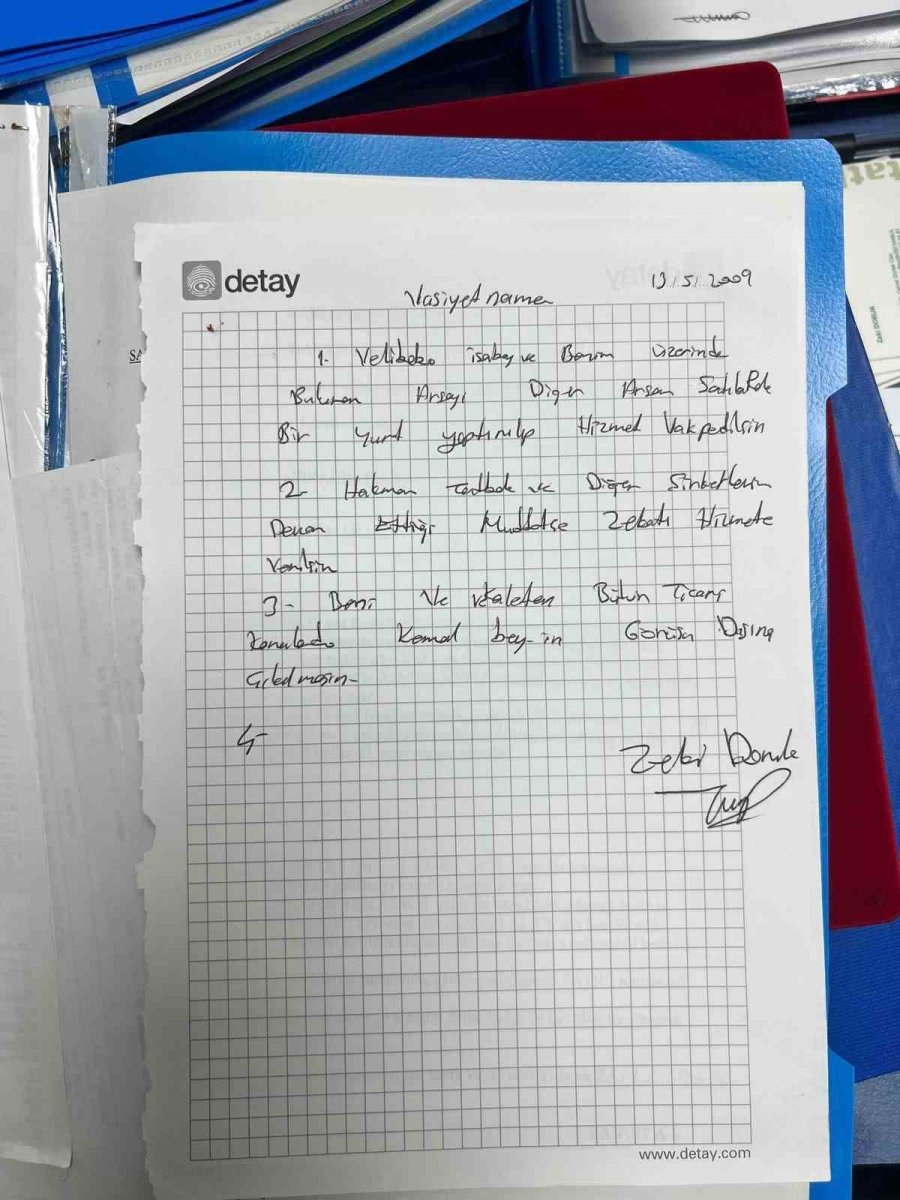 detay
13/5/2009
Vasiyet name
1- Velibaba isabey ve Benim üzerinde
Bulunan Arsayı Diğer Arsam Satılıp
Bir Yurt yaptırılıp Hizmet Vakpedilsin
2- Hakman ve Diğer Şirketlerin
Devam Ettiği Müddetçe Zekatı Hizmete
Verilsin
3- Beni Ve vekaleten Bütün Ticari
konularda Kemal bey-in Görüşü Dışına
Çıkılmasın-
4-
Zeki
www.detay.com